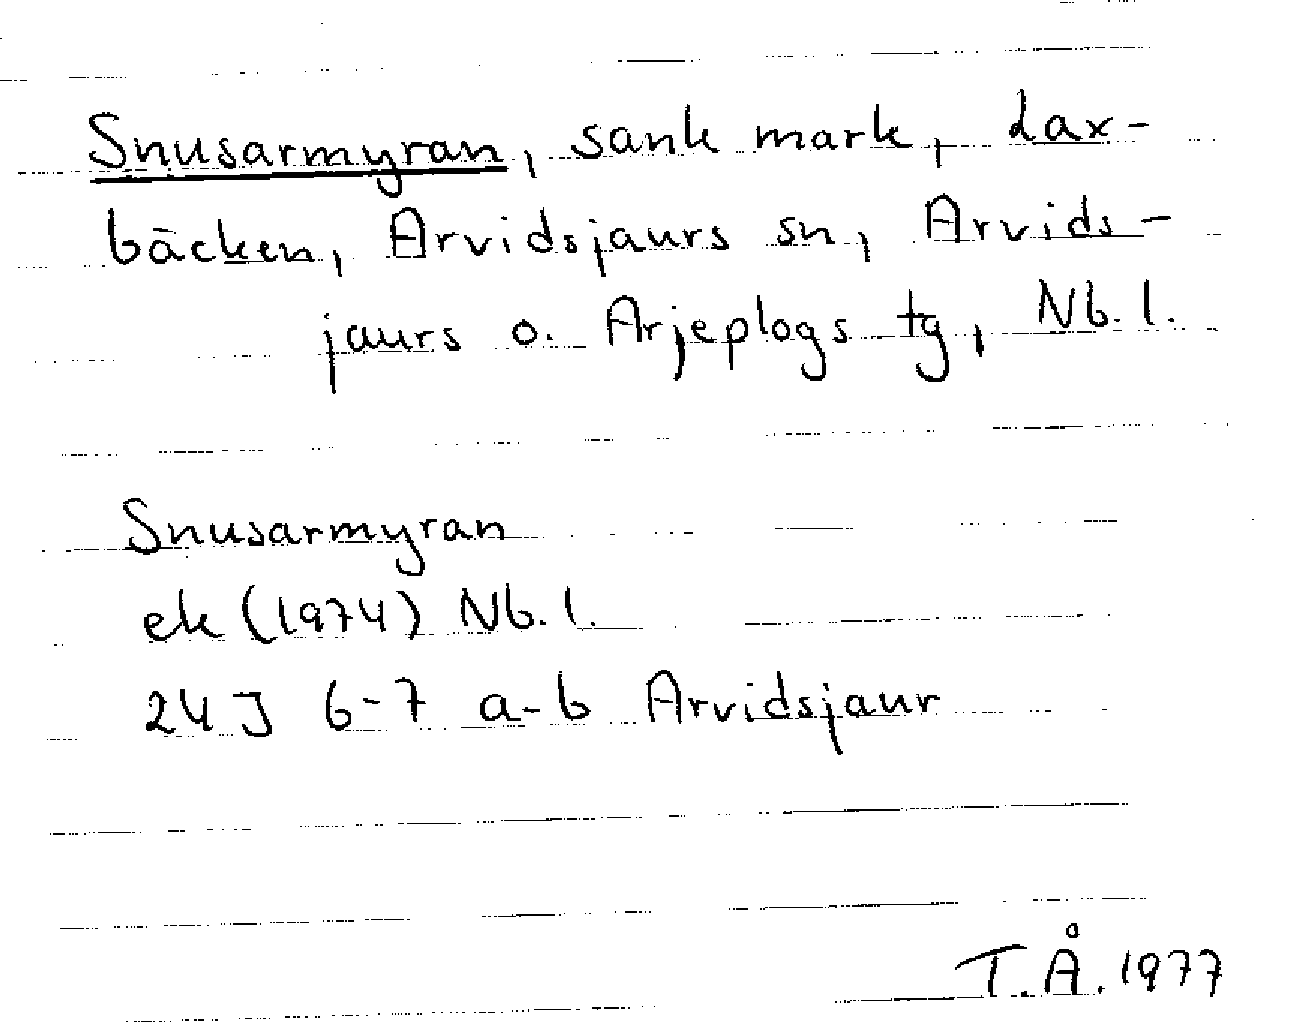 Snusarmyran, sank mark, Lax-
bäcken, Arvidsjaurs sn, Arvids-
jaurs o. Arjeplogs tg, Nb. l.
Snusarmyran
ek (1974) Nb. l.
24 J 6-7 a-b Arvidsjaur
T.Å. 1977